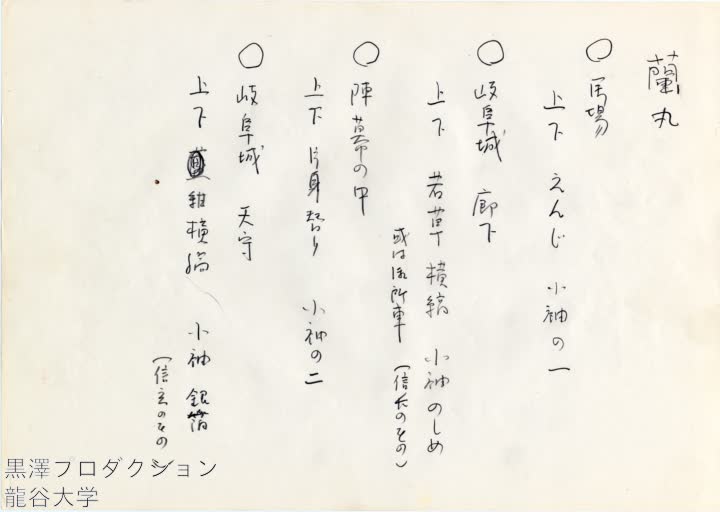 蘭丸
○馬場
上下 えんじ 小袖の一
○岐阜城 廊下
上下 若草 横縞 小袖 のしめ
或は 御所車 (信長のもの)
○陣幕の中
上下 片身替り 小袖の二
○岐阜城 天守
上下 横縞 小袖 銀箔
(信玄のもの
黒澤プロダクション
龍谷大学